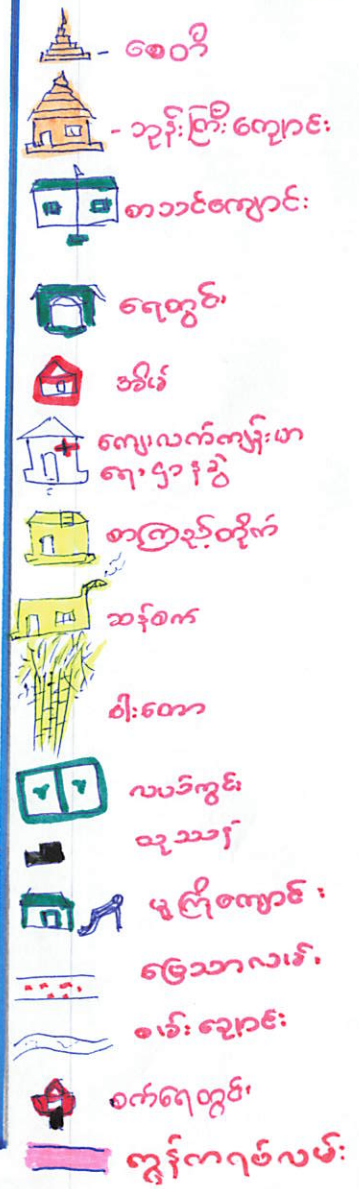 စေတီ
ဘုန်းကြီးကျောင်း
စာသင်ကျောင်း
ရေတွင်း
အိမ်
ကျေးလက်ကျန်းမာ
ရေးဌာနခွဲ
စာကြည့်တိုက်
ဆန်စက်
ဝါးတော
လယ်ကွင်း
သုသာန်
မူကြိုကျောင်း
မြေသားလမ်း
စမ်းချောင်း
စက်ရေတွင်း
ကွန်ကရစ်လမ်း